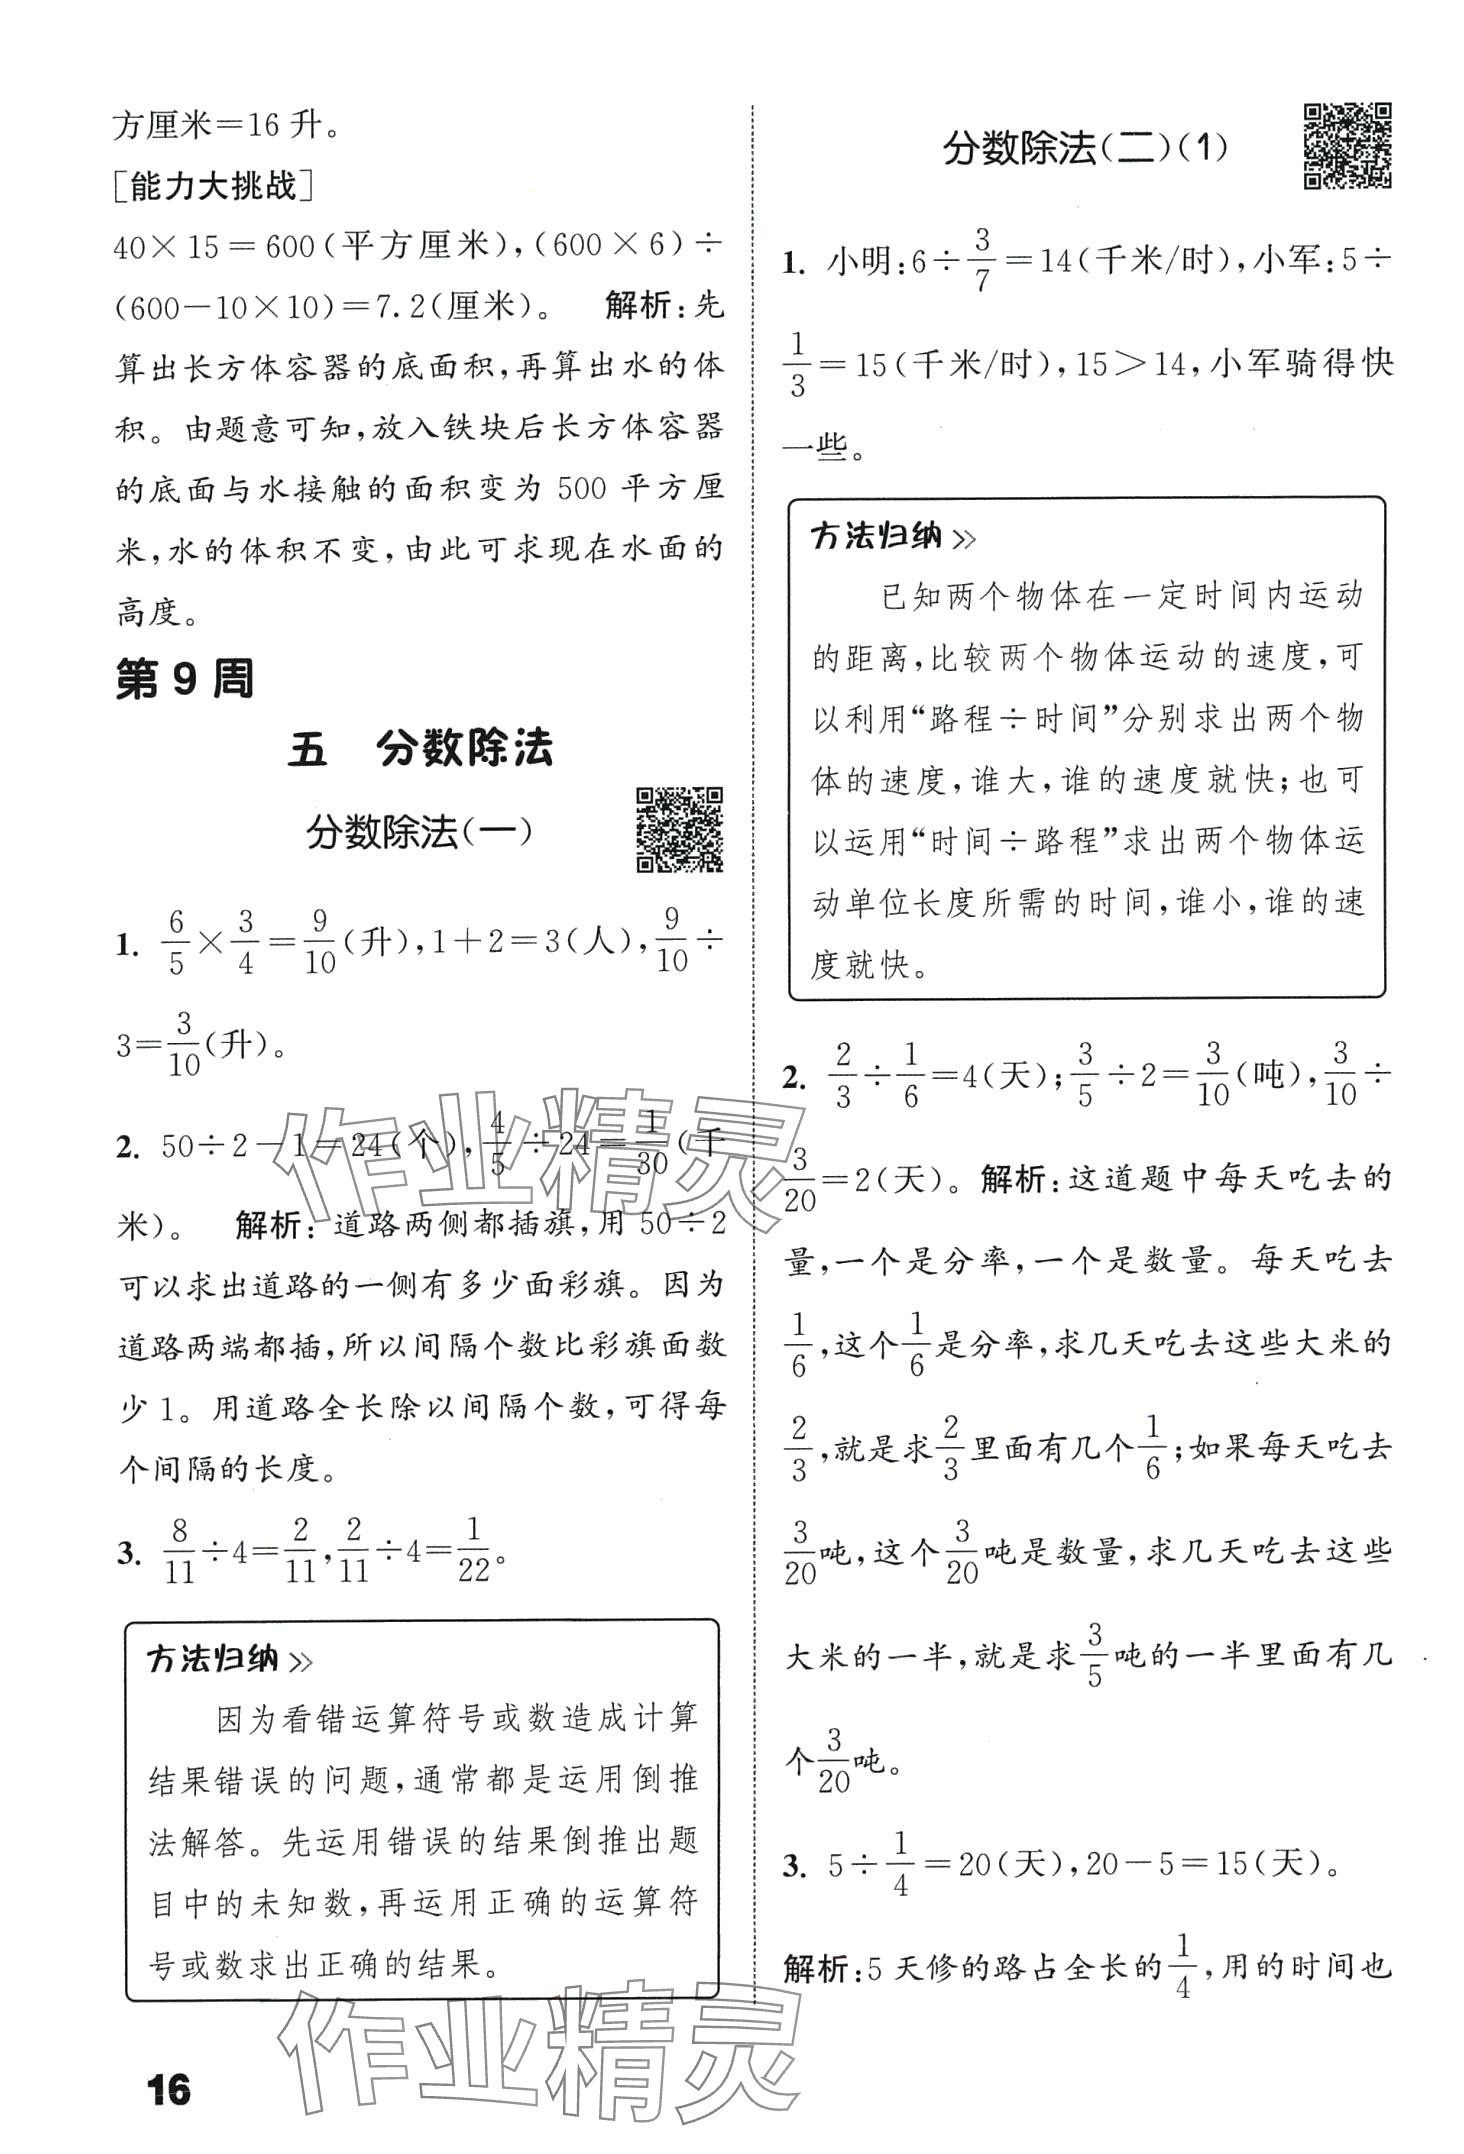 方厘米=16 升。
[能力大挑战]
40×15=600(平方厘米),(600×6)÷
(600-10×10)=7.2(厘米)。 解析:先
算出长方体容器的底面积,再算出水的体
积。由题意可知,放入铁块后长方体容器
的底面与水接触的面积变为 500 平方厘
米,水的体积不变,由此可求现在水面的
高度。
第 9 周
五 分数除法
分数除法(一)
1. 6/5×3/4=9/10(升),1+2=3(人),9/10÷
3=3/10(升)。
2. 50÷2-1=24(个),4/5÷24=1/30(千
米)。 解析:道路两侧都插旗,用 50÷2
可以求出道路的一侧有多少面彩旗。因为
道路两端都插,所以间隔个数比彩旗面数
少 1。用道路全长除以间隔个数,可得每
个间隔的长度。
3. 8/11÷4=2/11,2/11÷4=1/22。
方法归纳>>
因为看错运算符号或数造成计算
结果错误的问题,通常都是运用倒推
法解答。先运用错误的结果倒推出题
目中的未知数,再运用正确的运算符
号或数求出正确的结果。
16
分数除法(二)(1)
1. 小明:6÷3/7=14(千米/时),小军:5÷
1/3=15(千米/时),15>14,小军骑得快
一些。
方法归纳>>
已知两个物体在一定时间内运动
的距离,比较两个物体运动的速度,可
以利用“路程÷时间”分别求出两个物
体的速度,谁大,谁的速度就快;也可
以运用“时间÷路程”求出两个物体运
动单位长度所需的时间,谁小,谁的速
度就快。
2. 2/3÷1/6=4(天);3/5÷2=3/10(吨),3/10÷
3/20=2(天)。解析:这道题中每天吃去的
量,一个是分率,一个是数量。每天吃去
1/6,这个1/6是分率,求几天吃去这些大米的
2/3,就是求2/3里面有几个1/6;如果每天吃去
3/20吨,这个3/20吨是数量,求几天吃去这些
大米的一半,就是求3/5吨的一半里面有几
个3/20吨。
3. 5÷1/4=20(天),20-5=15(天)。
解析:5 天修的路占全长的1/4,用的时间也
作业精灵
作业精灵